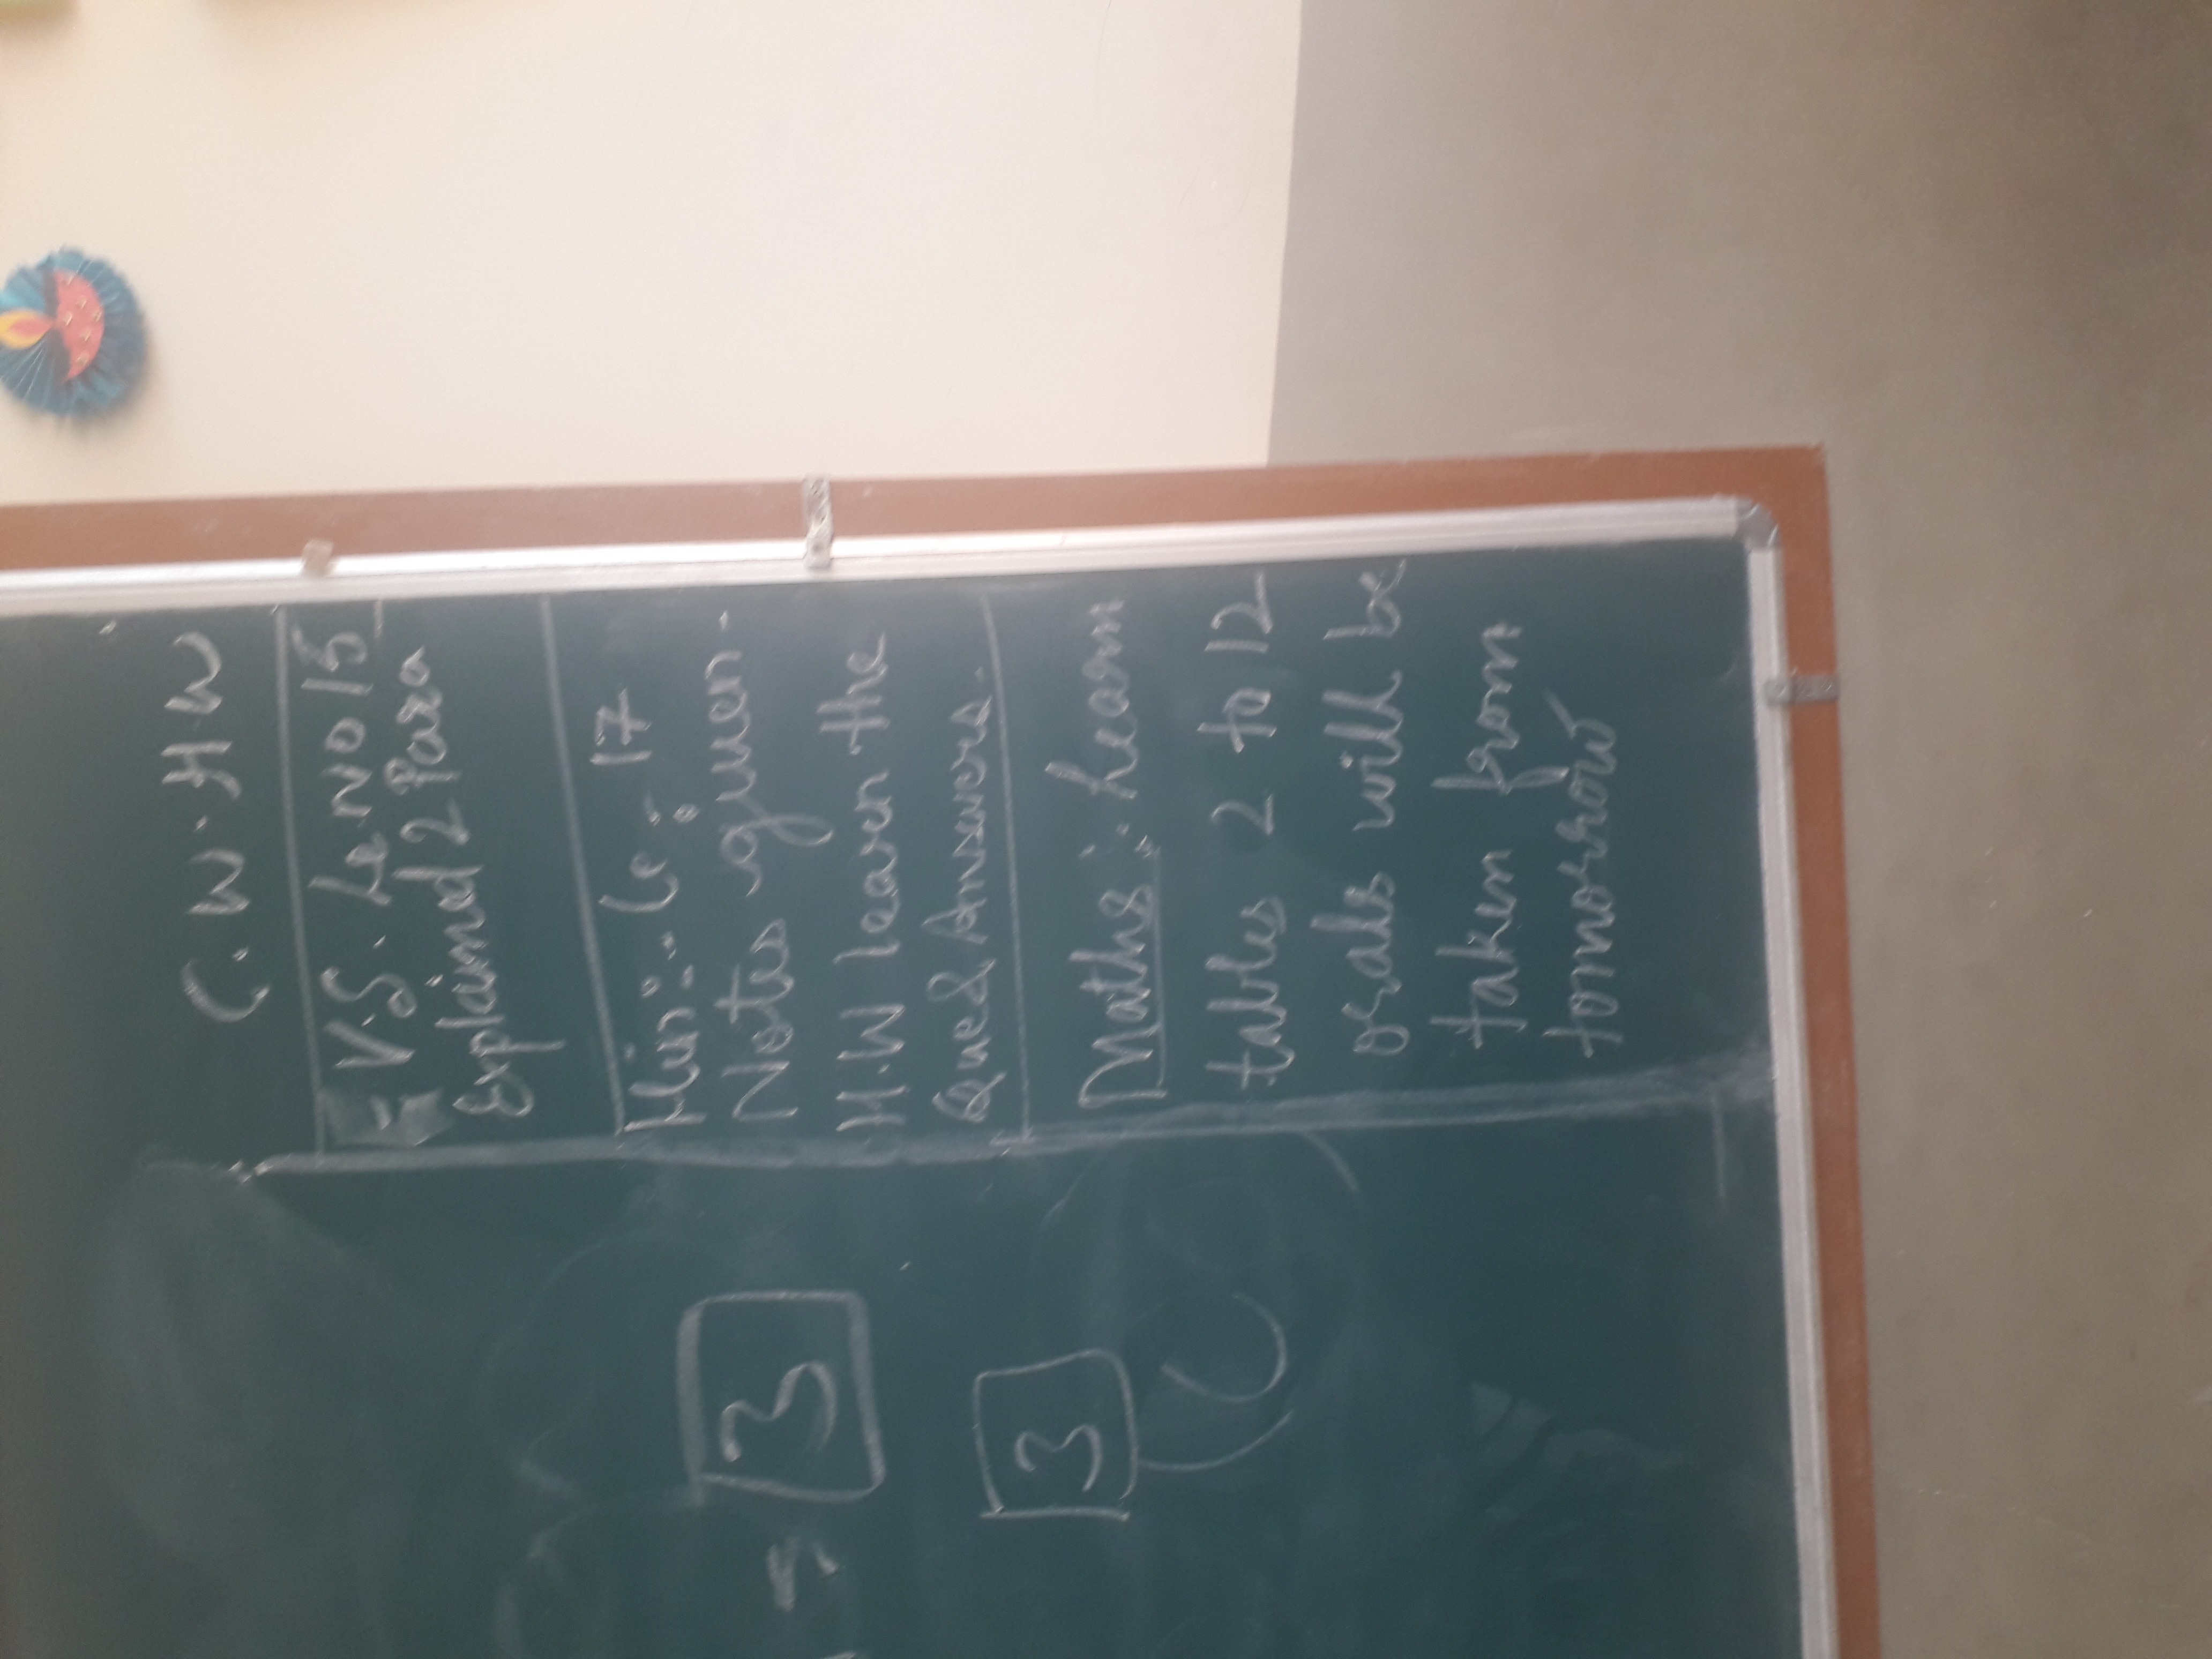 C.W. H.W
E.V.S. Le No 15
Explained 2 Para
Hin:- Le:- 17
Notes given.
H.W learn the
Que & Answers.
Maths:- Learn
tables 2 to 12
orals will be
taken from
tomorrow
3
3